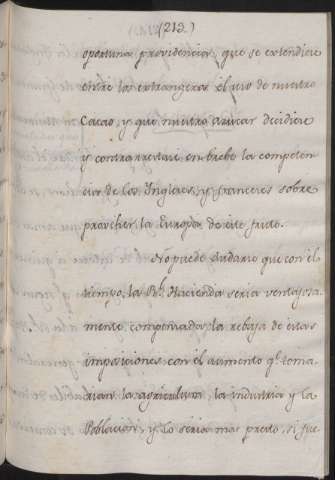 (213.)
oportuna providencia, que se extendiese
entre los extrangeros el uso de nuestro
Cacao, y que nuestro azucar decidiese
y contrarrestase en brebe la competen
cia de los Ingleses, y franceses sobre
proveher la Europa de este fruto.
No puede dudarse que con el
tiempo, la Rl. Hacienda seria ventajosa
mente compensada la rebaja de estas
imposiciones con el aumento qe. toma
rian la agricultura, la industria y la
Poblacion, y lo seria mas presto, si fue